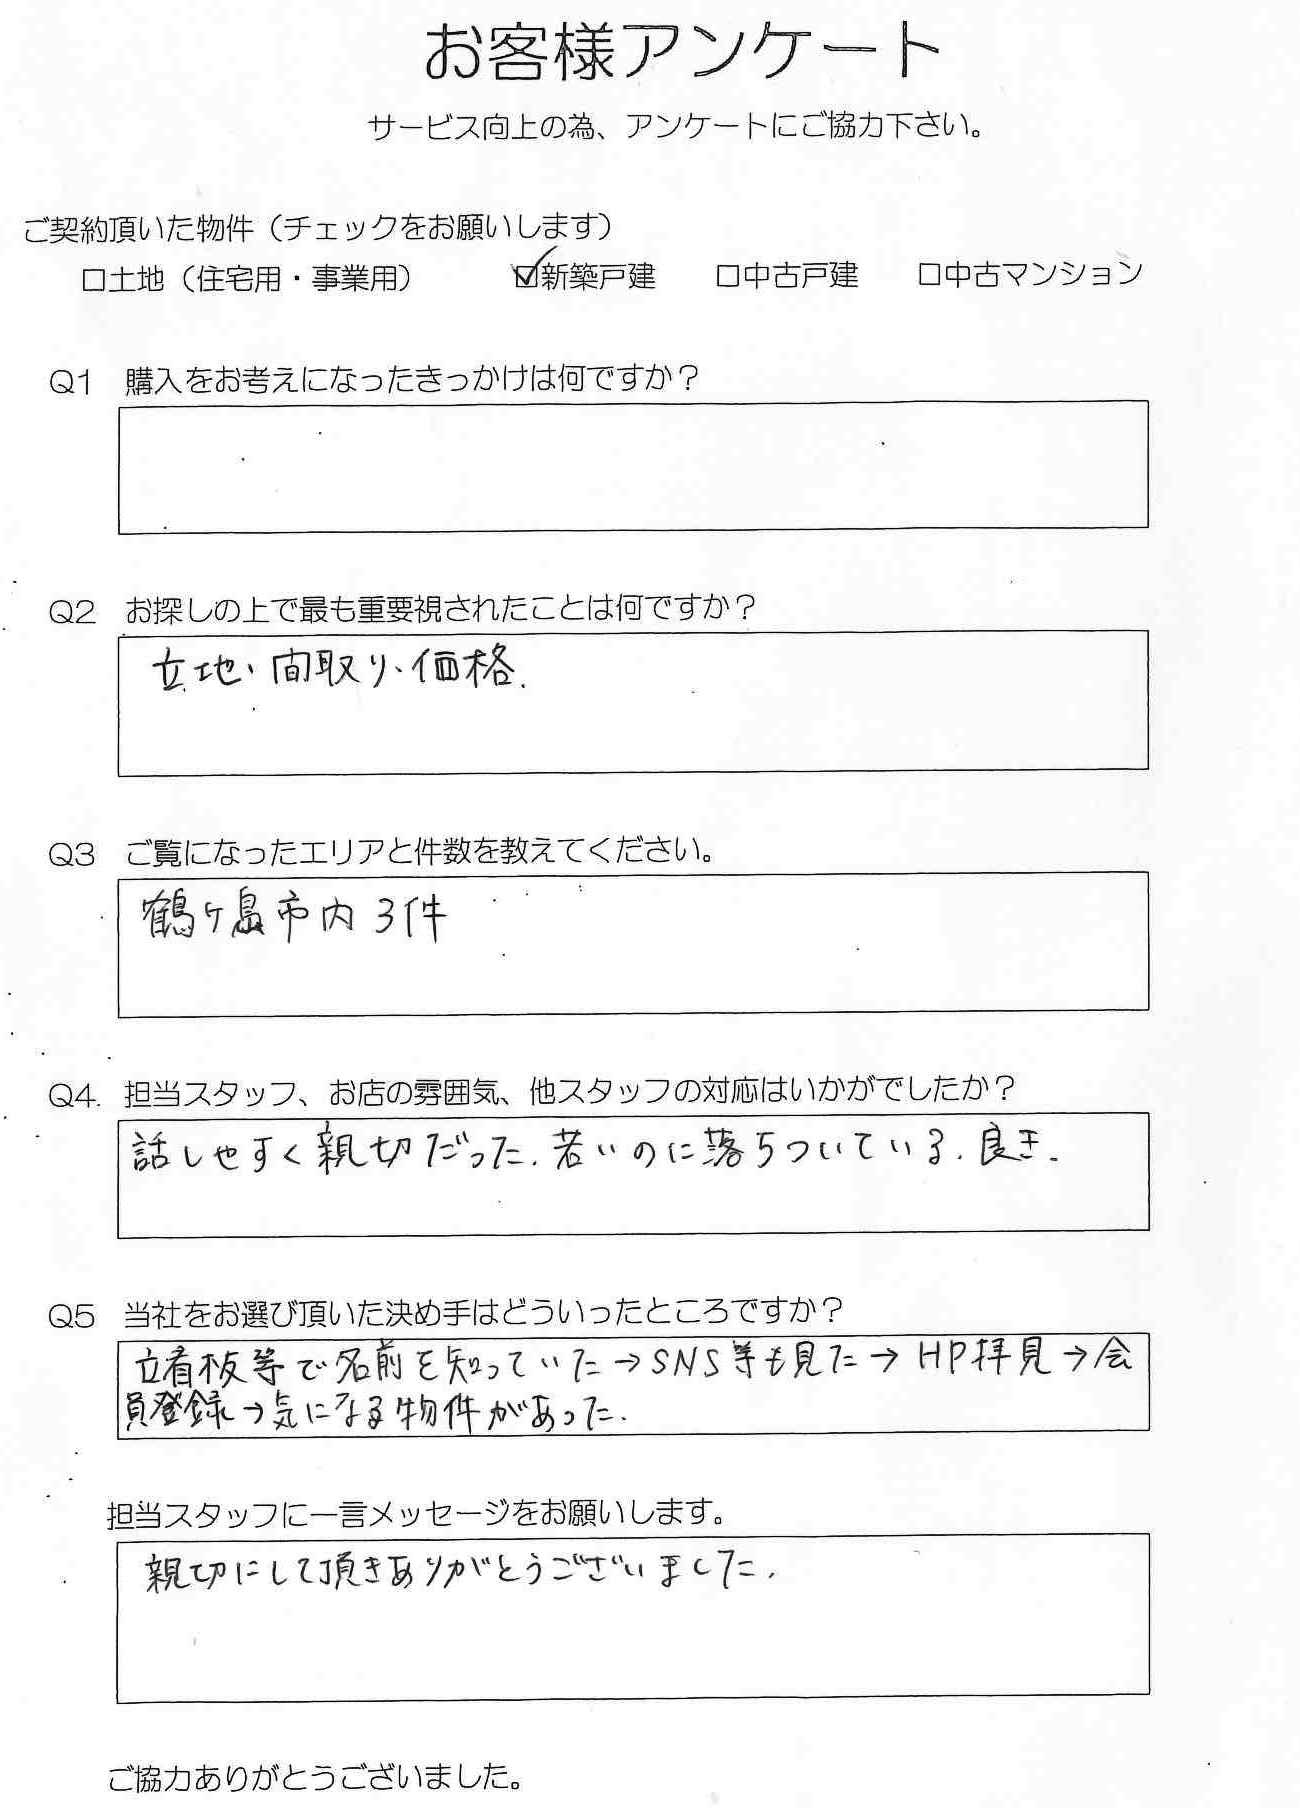 お客様アンケート
サービス向上の為、アンケートにご協力下さい。
ご契約頂いた物件（チェックをお願いします）
□土地（住宅用・事業用） ☑新築戸建 □中古戸建 □中古マンション
Q1 購入をお考えになったきっかけは何ですか？
Q2 お探しの上で最も重要視されたことは何ですか？
立地、間取り、価格.
Q3 ご覧になったエリアと件数を教えてください。
鶴ヶ島市内 3件
Q4. 担当スタッフ、お店の雰囲気、他スタッフの対応はいかがでしたか？
話しやすく親切だった. 若いのに落ちついている. 良き.
Q5 当社をお選び頂いた決め手はどういったところですか？
立看板等で名前を知っていた→SNS等も見た→HP拝見→会
員登録→気になる物件があった.
担当スタッフに一言メッセージをお願いします。
親切にして頂きありがとうございました.
ご協力ありがとうございました。